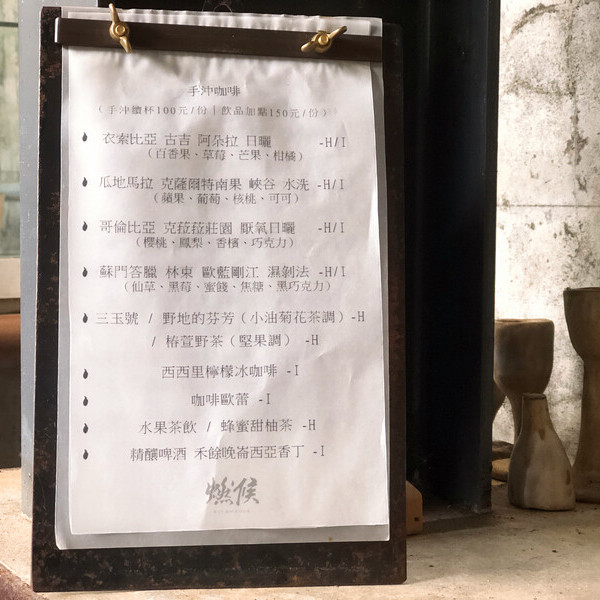 手沖咖啡
(手沖續杯100元/份|飲品加點150元/份)
衣索比亞 古吉 阿朵拉 日曬 -H/I
(百香果、草莓、芒果、柑橘)
瓜地馬拉 克薩爾特南果 峽谷 水洗 -H/I
(蘋果、葡萄、核桃、可可)
哥倫比亞 克菈菈莊園 厭氧日曬 -H/I
(櫻桃、鳳梨、香檳、巧克力)
蘇門答臘 林東 歐藍剛江 濕剝法 -H/I
(仙草、黑莓、蜜餞、焦糖、黑巧克力)
三玉號 / 野地的芬芳(小油菊花茶調)-H
/ 椿萱野茶(堅果調) -H
西西里檸檬冰咖啡 -I
咖啡歐蕾 -I
水果茶飲 / 蜂蜜甜柚茶 -H
精釀啤酒 禾餘晚崙西亞香丁 -I